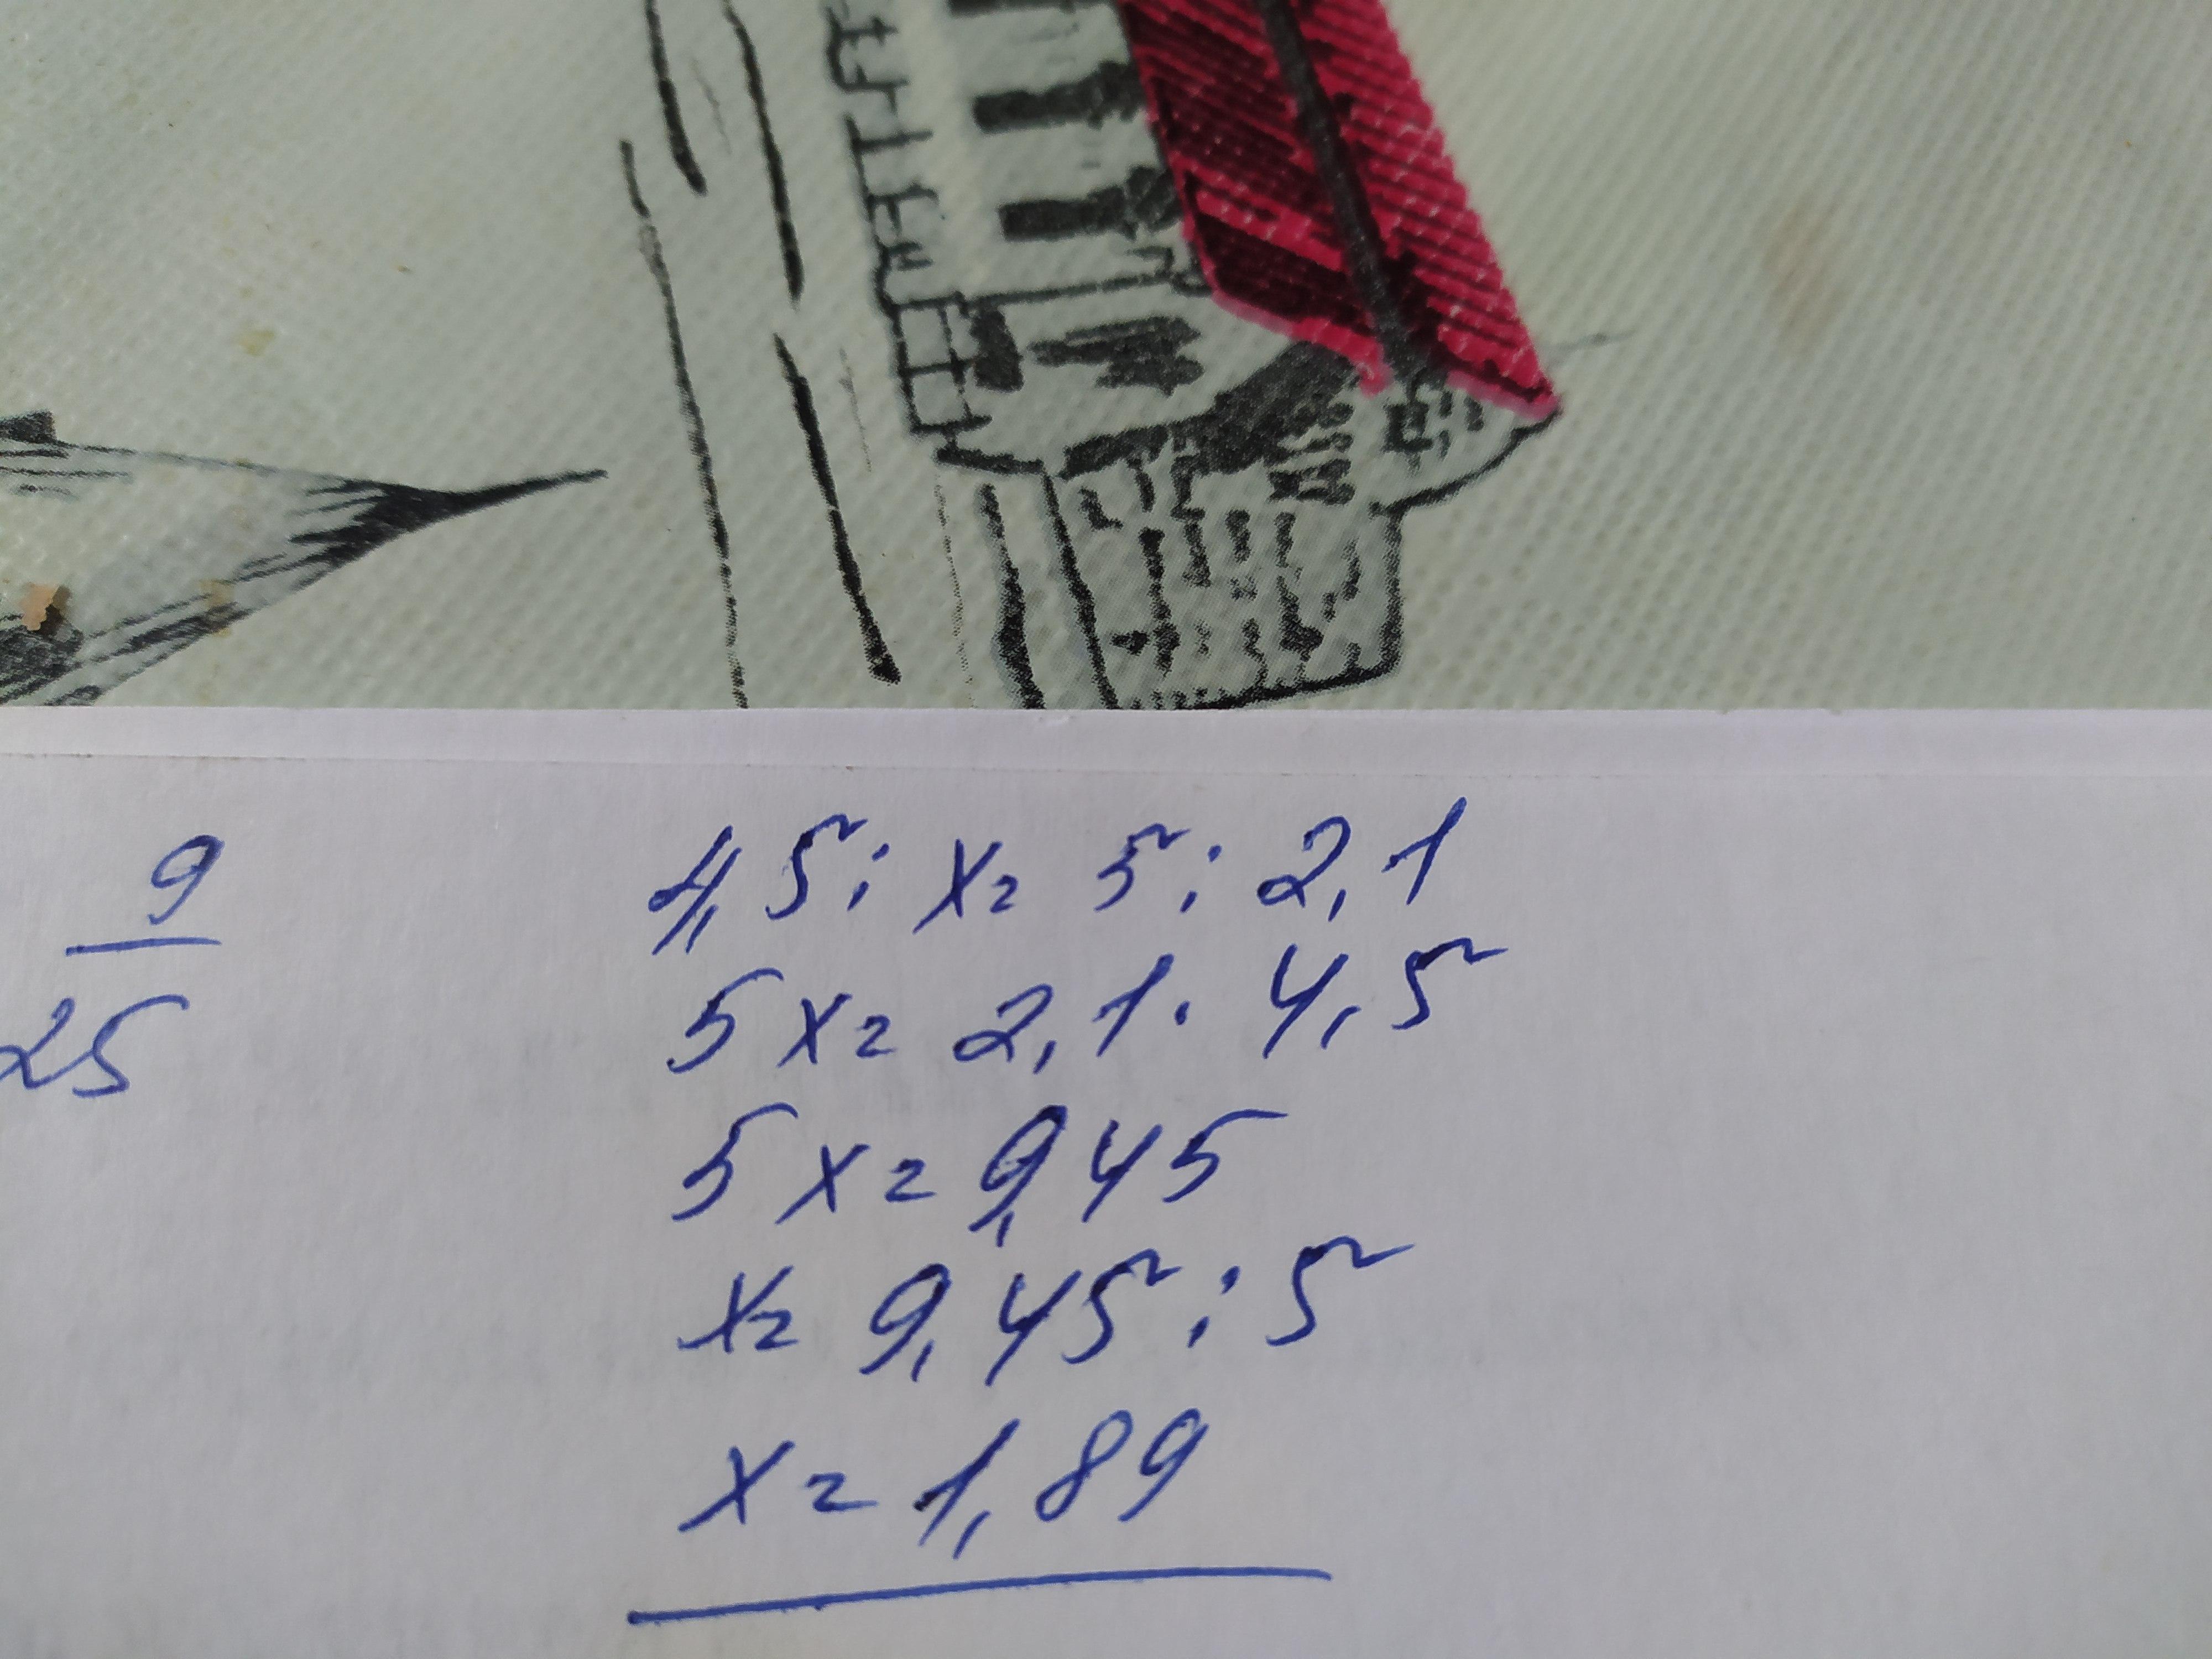 9
25
4,5 : x = 5 : 2,1
5x = 2,1 · 4,5
5x = 9,45
x = 9,45 : 5
x = 1,89